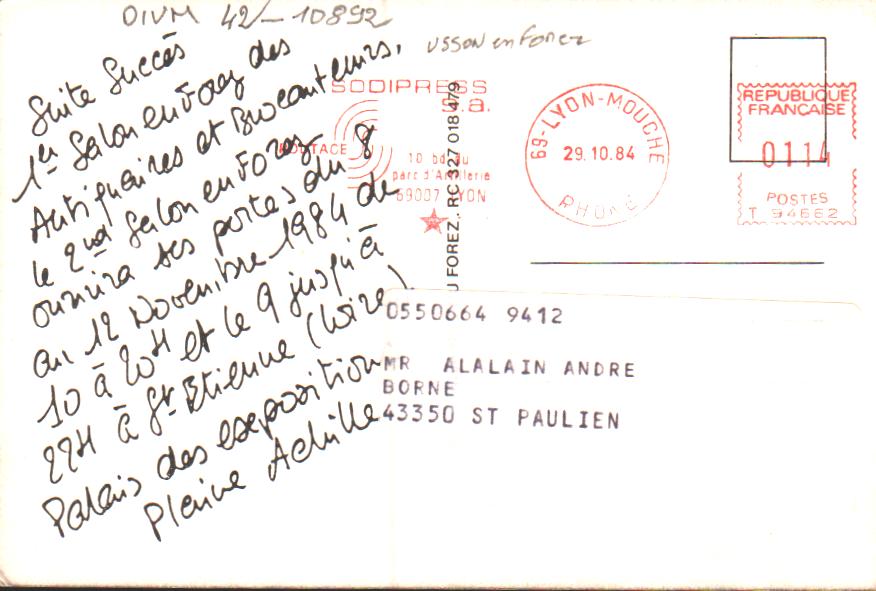 DIVM 42-10892
USSON en Forez
Suite Succès
1er Salon en Forez des
Antiquaires et Brocanteurs,
le 2nd Salon en Forez
ouvrira ses portes du 8
au 12 Novembre 1984 de
10 à 20H et le 9 jusqu'à
22H à St. Etienne (Loire)
Palais des exposition
Plaine Achille
SODIPRESS
s.a.
ROUTAGE
10 bd du
parc d'Artillerie
69007 LYON
U FOREZ.. RC 327 018 479
69-LYON-MOUCHE
29.10.84
RHONE
REPUBLIQUE
FRANCAISE
0114
POSTES
T. 94662
0550664 9412
MR ALALAIN ANDRE
BORNE
43350 ST PAULIEN